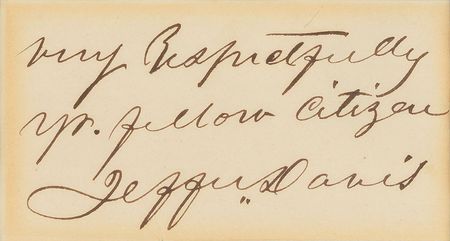 very Respectfully
yr. fellow citizen
Jeffn. Davis